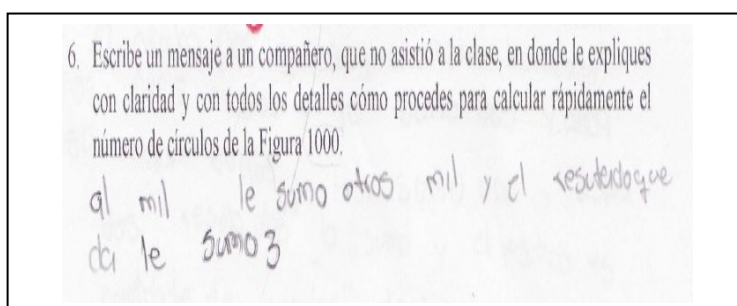 6. Escribe un mensaje a un compañero, que no asistió a la clase, en donde le expliques
con claridad y con todos los detalles cómo procedes para calcular rápidamente el
número de círculos de la Figura 1000.
al mil le sumo otros mil y el resuterdo que
da le sumo 3